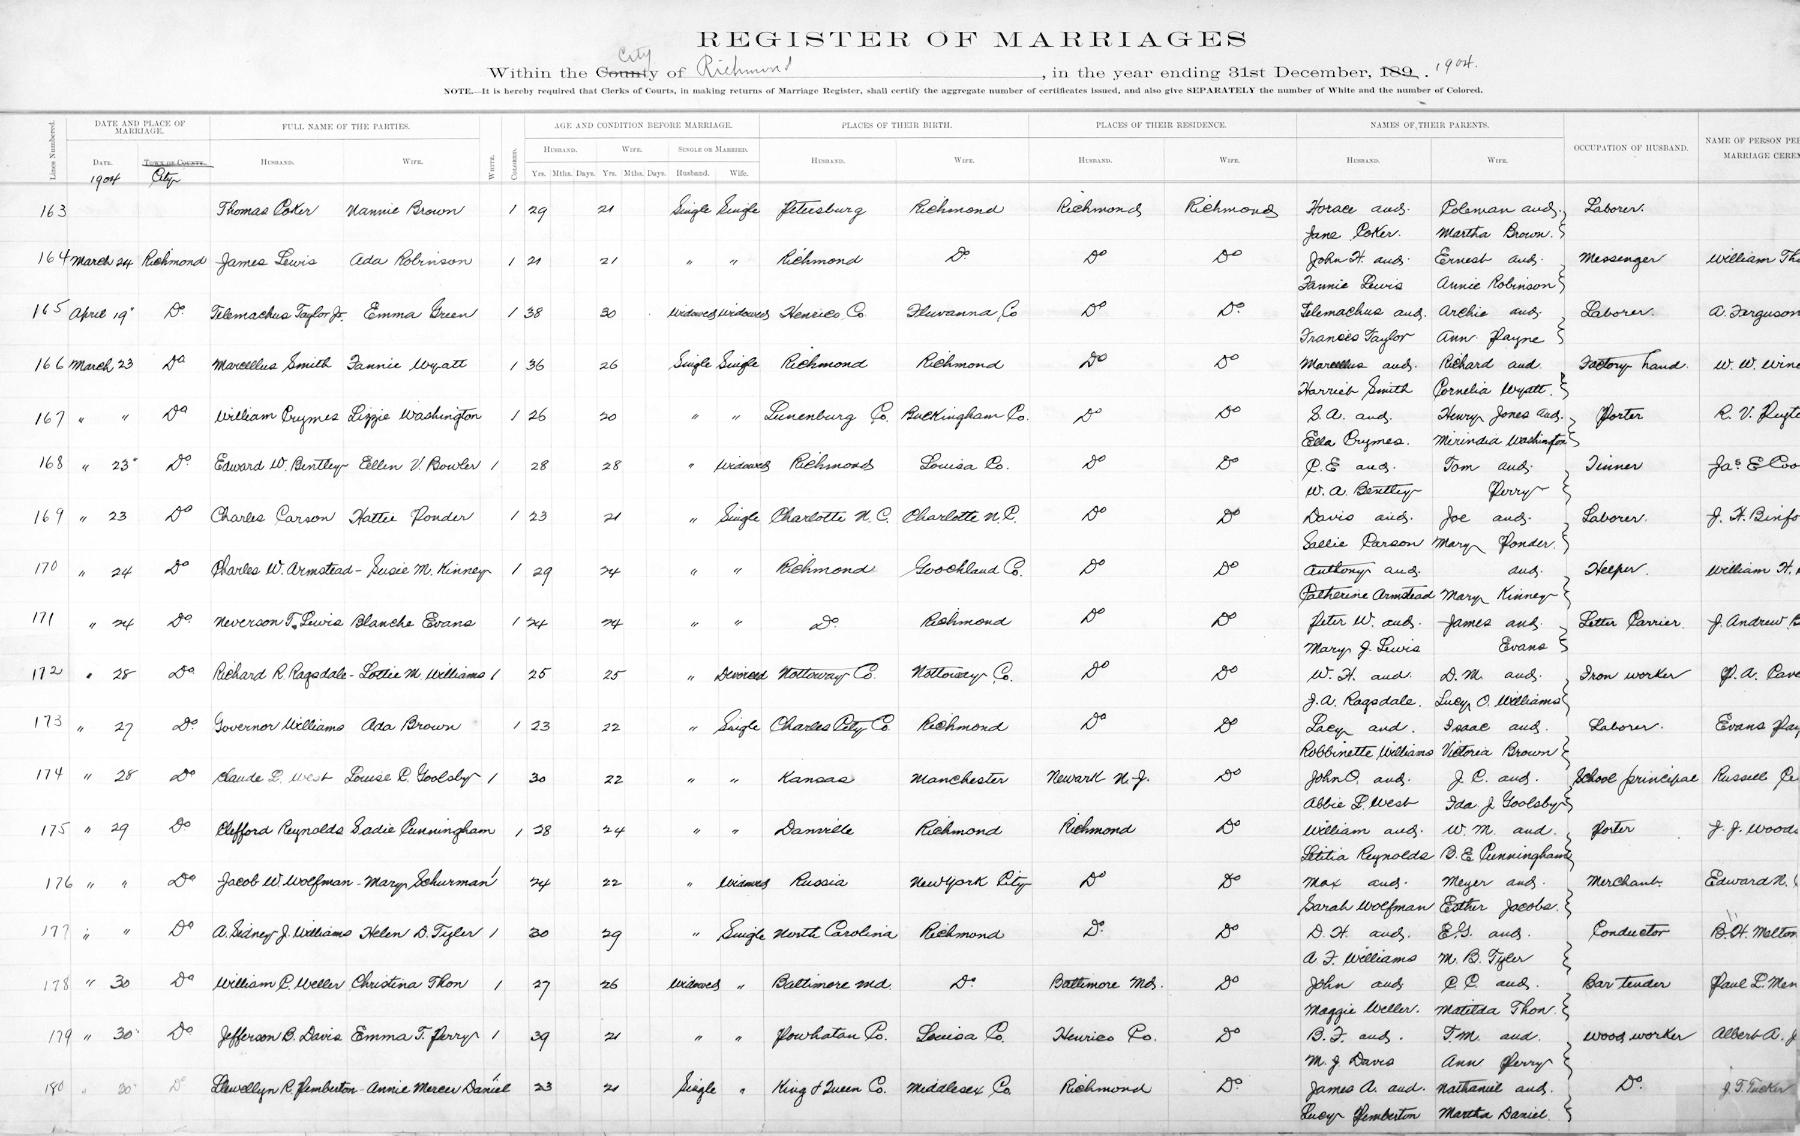 REGISTER OF MARRIAGES
City
Within the County of Richmond, in the year ending 31st December, 189 . 1904.
NOTE.—It is hereby required that Clerks of Courts, in making returns of Marriage Register, shall certify the aggregate number of certificates issued, and also give SEPARATELY the number of White and the number of Colored.
Lines Numbered. DATE AND PLACE OF MARRIAGE. FULL NAME OF THE PARTIES. WHITE. COLORED. AGE AND CONDITION BEFORE MARRIAGE. PLACES OF THEIR BIRTH. PLACES OF THEIR RESIDENCE. NAMES OF THEIR PARENTS. OCCUPATION OF HUSBAND. NAME OF PERSON PE
MARRIAGE CEREM
DATE. TOWN OR COUNTY. HUSBAND. WIFE. HUSBAND. WIFE. SINGLE OR MARRIED. HUSBAND. WIFE. HUSBAND. WIFE. HUSBAND. WIFE.
1904 City Yrs. Mths. Days. Yrs. Mths. Days. Husband. Wife.
163 Thomas Coker Nannie Brown 1 29 21 Single Single Petersburg Richmond Richmond Richmond Horace and Coleman and Laborer.
Jane Coker. Martha Brown.
164 March 24 Richmond James Lewis Ada Robinson 1 21 21 " " Richmond Do Do Do John H. and Ernest and Messenger William Th
Fannie Lewis Annie Robinson
165 April 19 Do Telemachus Taylor Jr. Emma Green 1 38 30 Widowed Widowed Henrico Co Fluvanna Co Do Do Telemachus and Archie and Laborer. A. Ferguson
Frances Taylor Ann Payne
166 March 23 Do Marcellus Smith Fannie Wyatt 1 36 26 Single Single Richmond Richmond Do Do Marcellus and Richard and Factory hand. W. W. Wine
Harriet Smith Cornelia Wyatt.
167 " " Do William Crymes Lizzie Washington 1 26 20 " " Lunenburg Co. Buckingham Co. Do Do S. A. and Henry Jones and Porter R. V. Peyto
Ella Crymes. Mirindia Washington
168 " 23 Do Edward W. Bentley Ellen V. Bowler 1 28 28 " Widowed Richmond Louisa Co. Do Do C. E and Tom and Tinner Jas E Coo
W. A. Bentley Perry
169 " 23 Do Charles Carson Hattie Ponder 1 23 21 " Single Charlotte N. C. Charlotte N. C. Do Do Davis and Joe and Laborer. J. H. Binfo
Sallie Carson Mary Ponder.
170 " 24 Do Charles W. Armstead - Susie M. Kinney 1 29 24 " " Richmond Goochland Co. Do Do Anthony and and Helper. William H.
Catherine Armstead Mary Kinney
171 " 24 Do Neverson T. Lewis Blanche Evans 1 24 24 " " Do Richmond Do Do Peter W. and James and Letter Carrier J. Andrew B
Mary J. Lewis Evans
172 " 28 Do Richard R. Ragsdale - Lottie M. Williams 1 25 25 " Divorced Nottoway Co. Nottoway Co. Do Do W. H. and D. M. and Iron worker P. A. Cave
J. A. Ragsdale. Lucy O. Williams
173 " 27 Do Governor Williams Ada Brown 1 23 22 " Single Charles City Co Richmond Do Do Lacy and Isaac and Laborer. Evans Pay
Robbinette Williams Victoria Brown
174 " 28 Do Claude L. West Louise C. Goolsby 1 30 22 " " Kansas Manchester Newark N. J. Do John O. and J. C. and School principal Russell Ce
Abbie L. West Ida J. Goolsby
175 " 29 Do Clifford Reynolds Sadie Cunningham 1 28 24 " " Danville Richmond Richmond Do William and W. M. and Porter J. J. Woods
Letitia Reynolds B. E Cunningham
176 " " Do Jacob W. Wolfman - Mary Schurman 1 24 22 " Widowed Russia New York City Do Do Max and Meyer and Merchant. Edward N.
Sarah Wolfman Esther Jacobs.
177 " " Do A. Sidney J. Williams Helen D. Tyler 1 30 29 " Single North Carolina Richmond Do Do D. H. and E. G. and Conductor B. H. Melton
A F. Williams M. B. Tyler
178 " 30 Do William C. Weller Christina Thon 1 27 26 Widowed " Baltimore Md. Do Baltimore Md. Do John and C. C. and Bar tender Paul L. Men
Maggie Weller. Matilda Thon.
179 " 30 Do Jefferson B. Davis Emma T. Perry 1 39 21 " " Powhatan Co. Louisa Co. Henrico Co. Do B. F. and T. M. and Wood worker Albert A. J
M. J Davis Ann Perry
180 " 30 Do Llewellyn R. Pemberton - Annie Mercer Daniel 1 23 21 Single " King & Queen Co. Middlesex Co. Richmond Do James A. and Nathaniel and Do J. T. Tucker
Lucy Pemberton Martha Daniel.